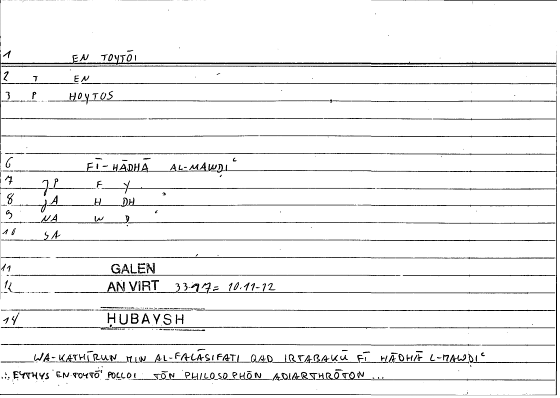 1 EN TOYTŌI
2 T EN
3 P HOYTOS
6 FĪ-HĀDHĀ AL-MAWḌIʿ
7 JP F Y
8 JA H DH ʿ
9 NA W Ḍ ʿ
10 SA
11 GALEN
12 AN VIRT 33 = 10.11-12
14 ḤUBAYSH
WA-KATHĪRUN MIN AL-FALĀSIFATI QAD IRTABAKŪ FĪ HĀDHĀ L-MAWḌIʿ
∴ EYTHYS EN TOYTŌ POLLOI TŌN PHILOSOPHŌN ADIARTHRŌTON ...